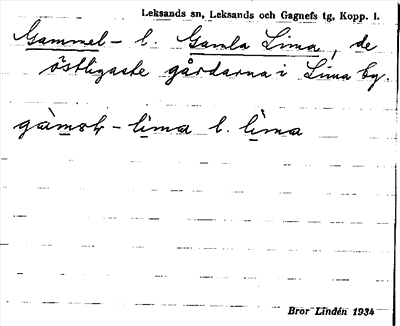 Leksands sn, Leksands och Gagnefs tg, Kopp. l.
Gammel- l. Gamla Lima, de
östligaste gårdarna i Lima by.
-lima l. lima
Bror Lindén 1934